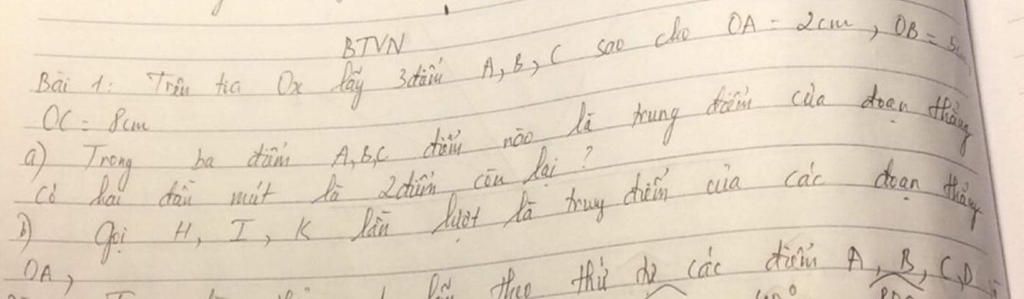 BTVN
Bài 1: Trên tia Ox lấy 3 điểm A, B, C sao cho OA = 2cm, OB = 5cm,
OC = 8cm
a) Trong ba điểm A, B, C điểm nào là trung điểm của đoạn thẳng
có hai đầu mút là 2 điểm còn lại?
b) Gọi H, I, K lần lượt là trung điểm của các đoạn thẳng
OA,
theo thứ tự các điểm A, B, C, D